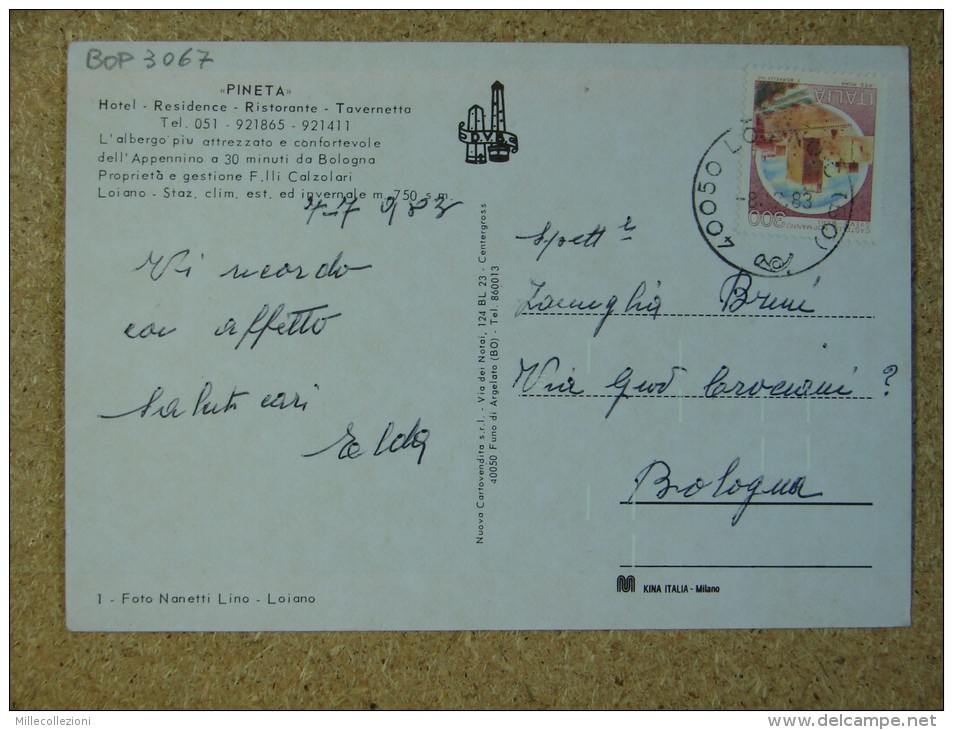 BOP 3067
«PINETA»
Hotel - Residence - Ristorante - Tavernetta
Tel. 051 - 921865 - 921411
L'albergo più attrezzato e confortevole
dell'Appennino a 30 minuti da Bologna
Proprietà e gestione F.lli Calzolari
Loiano - Staz. clim. est. ed invernale m. 750 s.m.
Vi ricordo
con affetto
Saluti cari
Elda
1 - Foto Nanetti Lino - Loiano
D.V.B.
Nuova Cartovendita s.r.l. - Via dei Notai, 124 BL 23 - Centergross
40050 Funo di Argelato (BO) - Tel. 860013
ITALIA
300
40050 LO
83
Spett.le
Famiglia Bruni
Via Crociani ?
Bologna
KINA ITALIA - Milano
Millecollezioni
www.delcampe.net